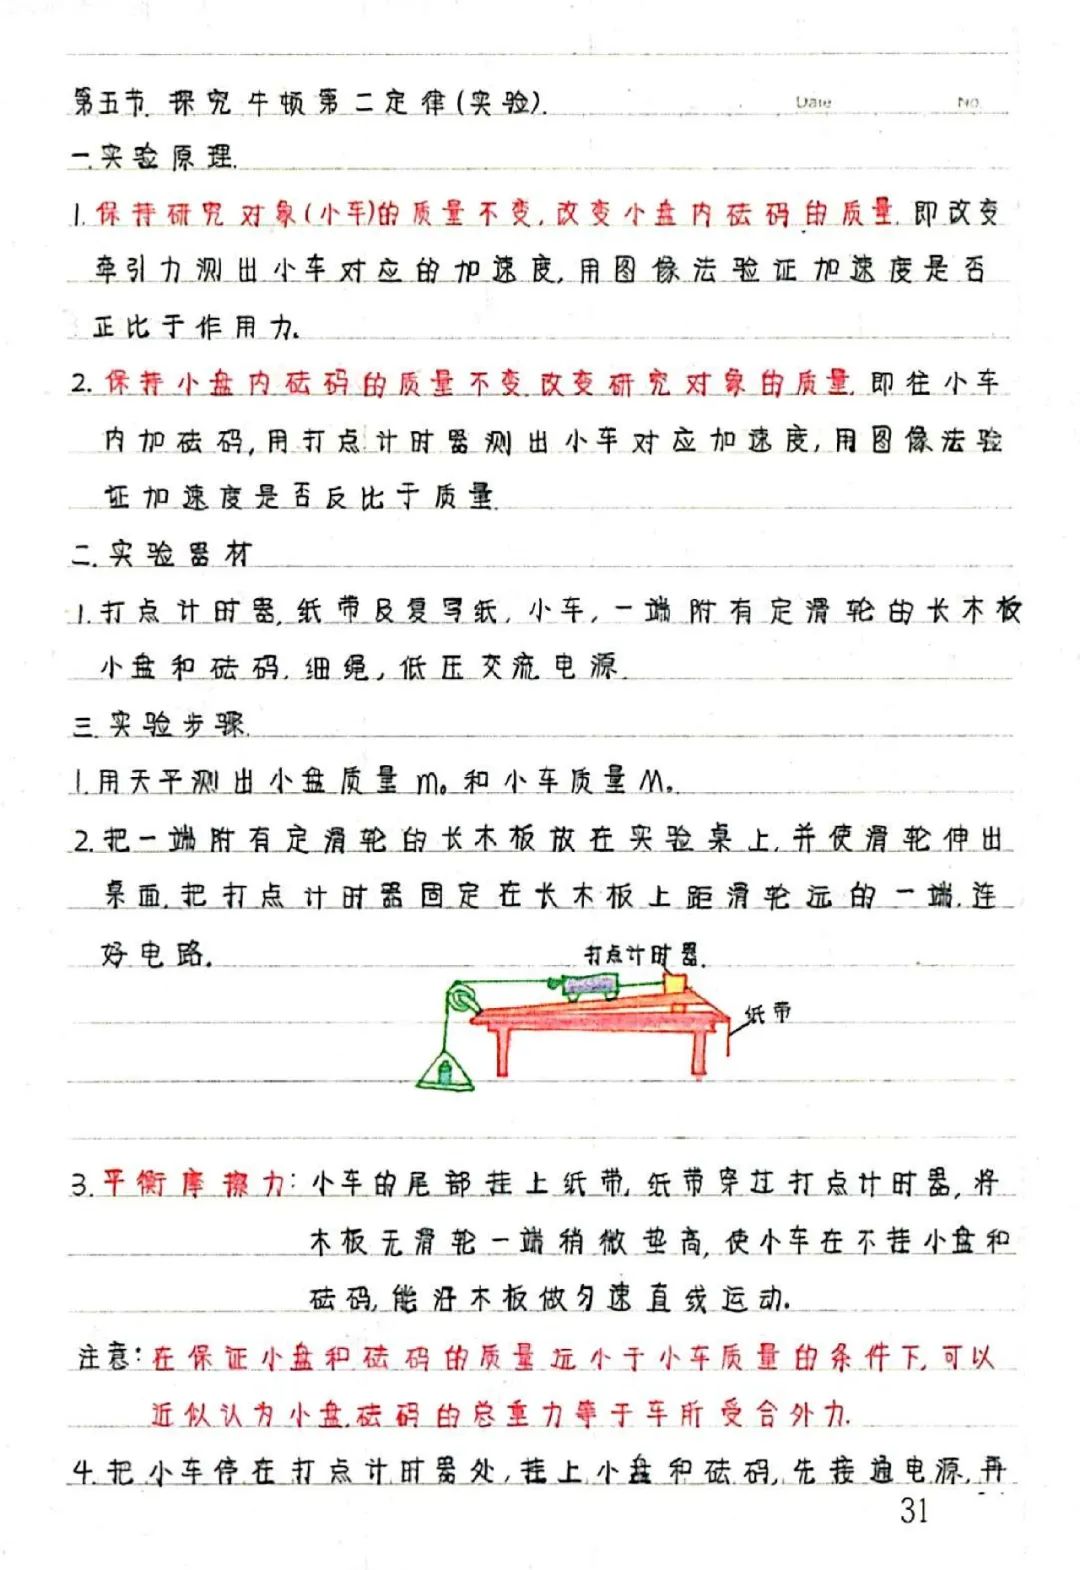 第五节.探究牛顿第二定律(实验).
Date No.
一.实验原理.
1.保持研究对象(小车)的质量不变,改变小盘内砝码的质量.即改变
牵引力测出小车对应的加速度,用图像法验证加速度是否
正比于作用力.
2.保持小盘内砝码的质量不变.改变研究对象的质量.即往小车
内加砝码,用打点计时器测出小车对应加速度,用图像法验
证加速度是否反比于质量.
二.实验器材
1.打点计时器,纸带及复写纸,小车,一端附有定滑轮的长木板
小盘和砝码.细绳,低压交流电源.
三.实验步骤.
1.用天平测出小盘质量m。和小车质量M。
2.把一端附有定滑轮的长木板放在实验桌上.并使滑轮伸出
桌面.把打点计时器固定在长木板上距滑轮远的一端.连
好电路.
打点计时器.
纸带
3.平衡摩擦力:小车的尾部挂上纸带,纸带穿过打点计时器,将
木板无滑轮一端稍微垫高,使小车在不挂小盘和
砝码,能沿木板做匀速直线运动.
注意:在保证小盘和砝码的质量远小于小车质量的条件下,可以
近似认为小盘.砝码的总重力等于车所受合外力.
4.把小车停在打点计时器处,挂上小盘和砝码,先接通电源,再
31